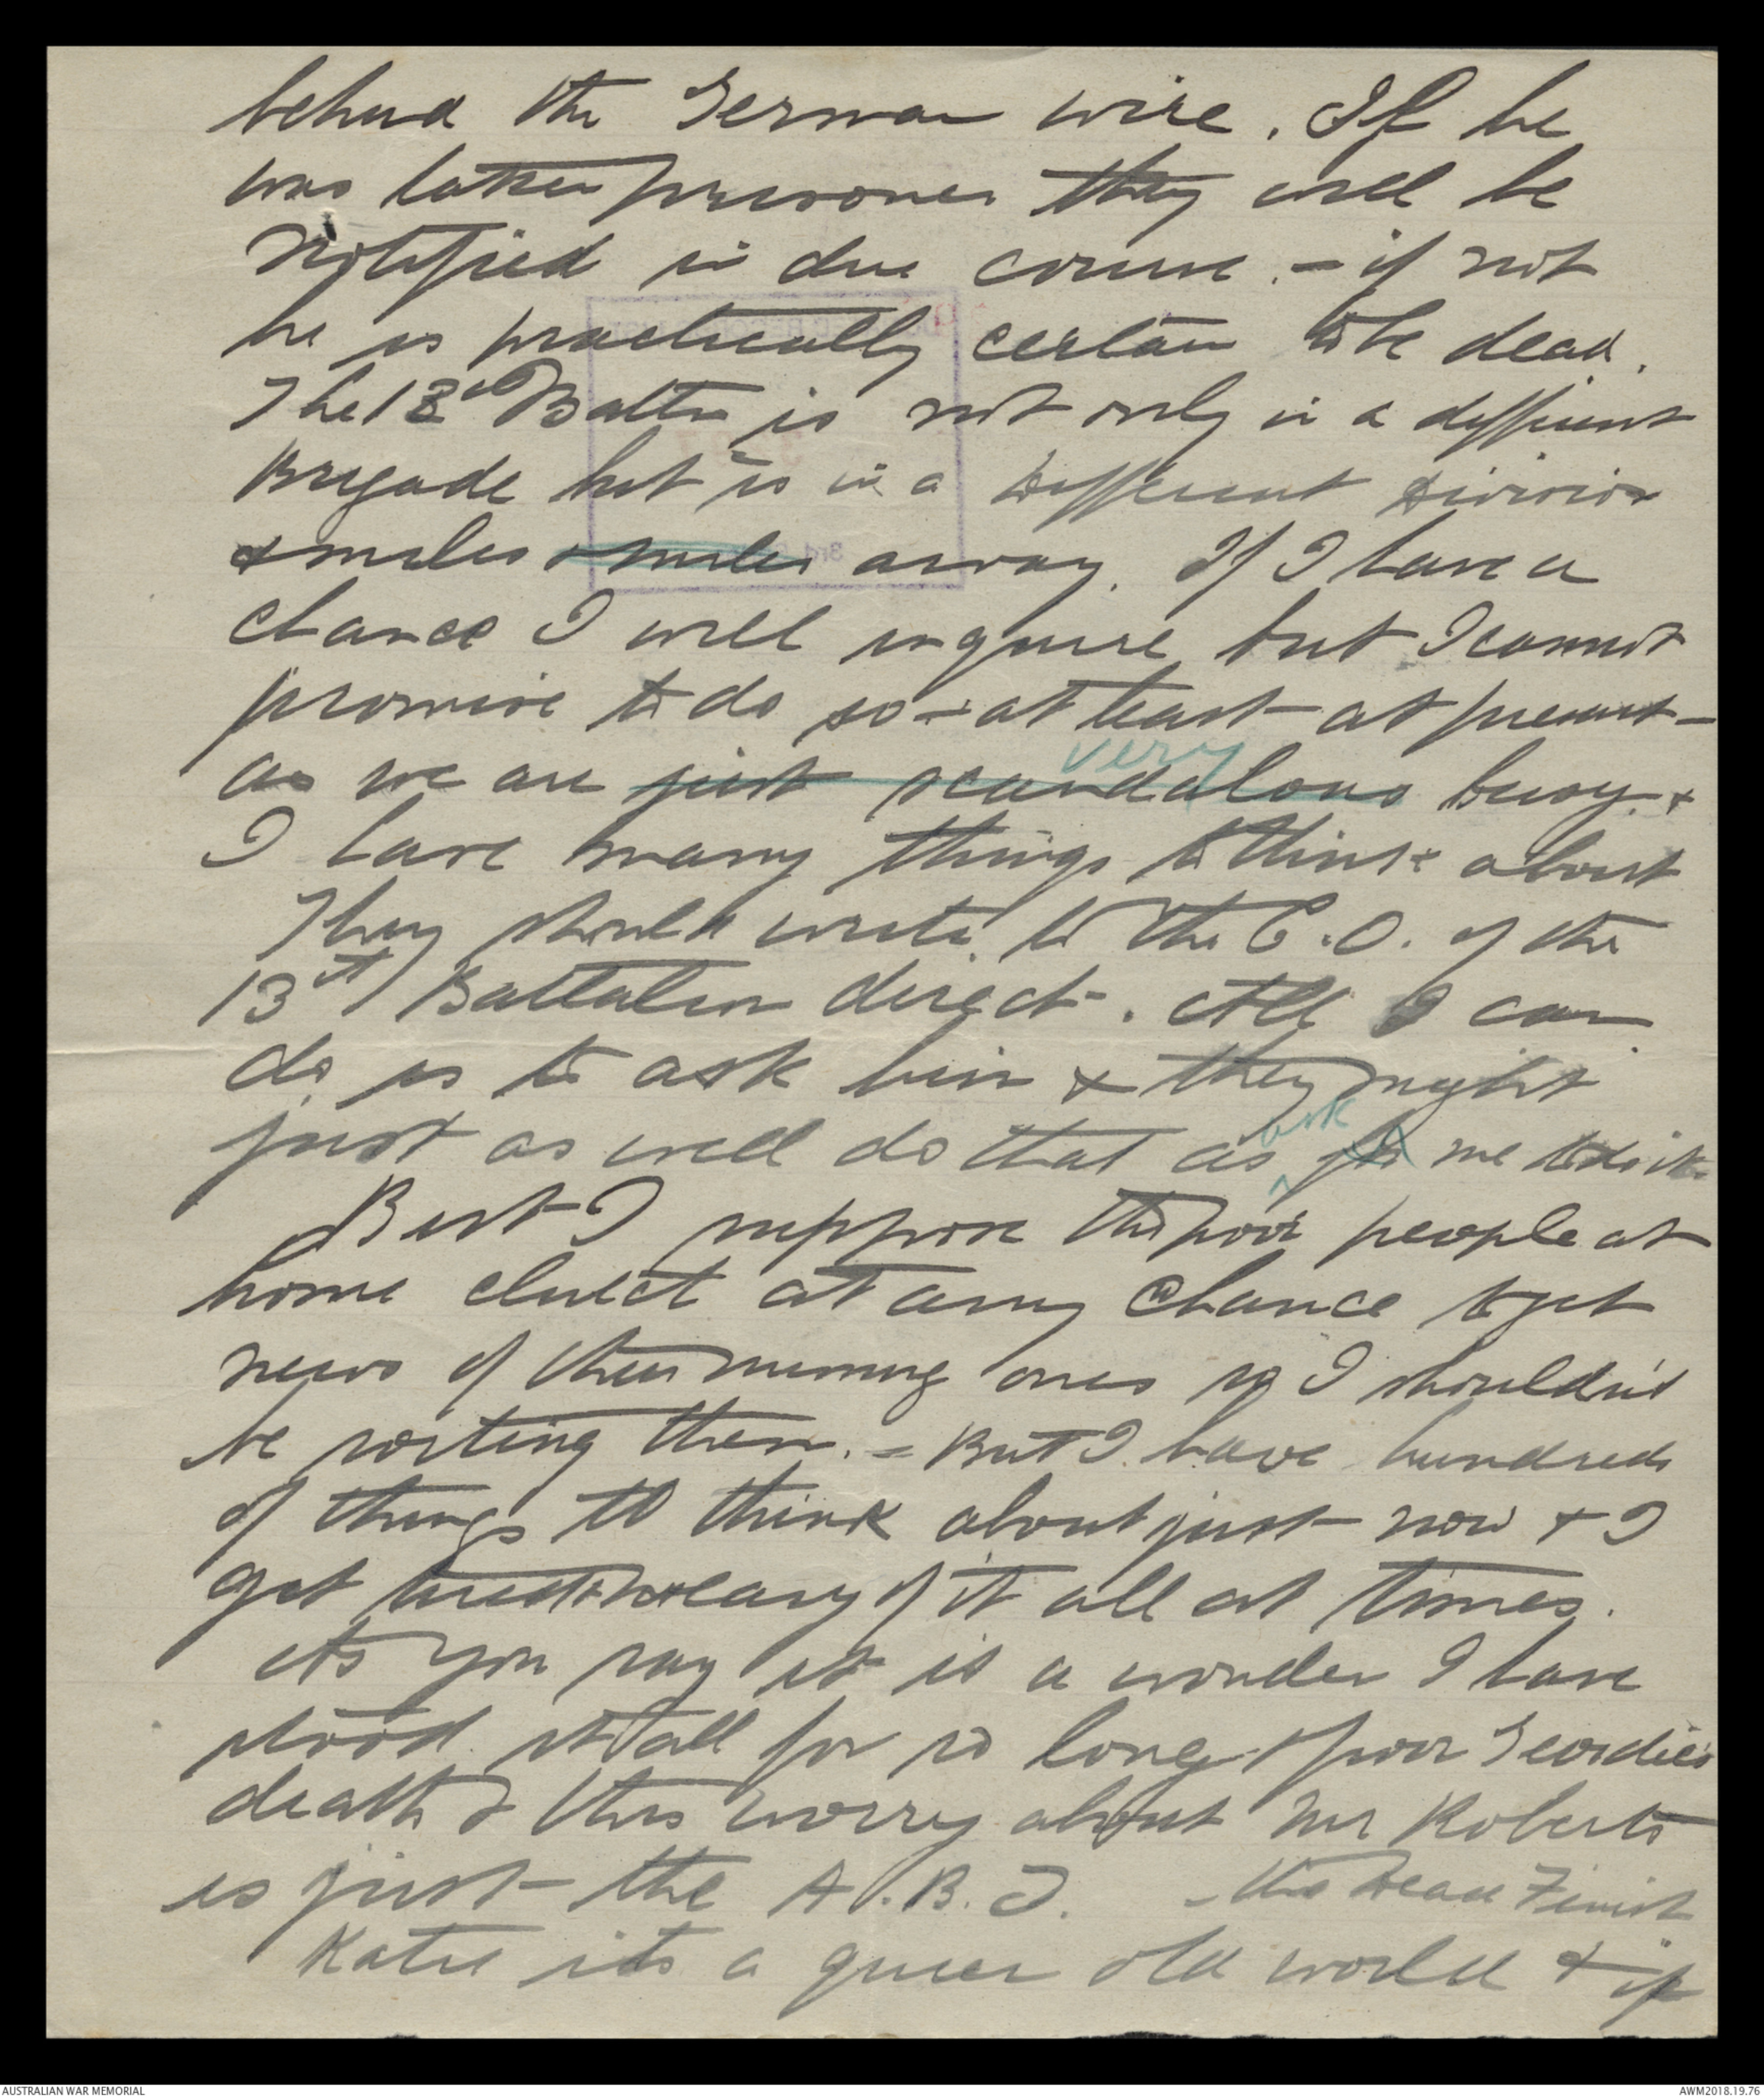 behind the German wire. If he
was taken prisoner they will be
notified in due course. - if not
he is practically certain to be dead.
The 13th Battn is not only in a different
Brigade but is in a different division
& miles & miles away. If I have a
chance I will inquire but I cannot
promise to do so - at least at present -
very
as we are just scandalous busy. &
I have many things to think about
They should write to the C.O. of the
13th Battalion direct. All I can
do is to ask him & they might
ask
just as well do that as for me to do it.
But I suppose the poor people at
home clutch at any chance to get
news of their missing ones so I shouldn't
be roasting them. - But I have hundreds
of things to think about just now & I
get tired & weary of it all at times.
As you say it is a wonder I have
stood it all for so long & poor Geordie's
death & this worry about Mr Roberts
is just the A.B.J. - the Dead Finish
Katie its a queer old world & if
AUSTRALIAN WAR MEMORIAL
AWM2018.19.76